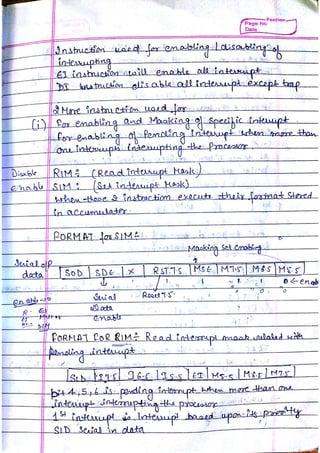 Page No.
Date
Instruction used for enabling / disabling of
interrupting
EI instruction will enable all interrupt
DI instruction disable all interrupt except trap
2 More instruction used for
(i) For enabling and Masking of specific interrupt
For enabling of Pending interrupt when more than
one interrupts interrupting the processor
Disable RIM: (Read interrupt Mask)
enable SIM: (Set interrupt Mask)
when those 2 instruction execute their format stored
in accumulator
FORMAT for SIM:
Masking Set Enabling
Serial o/p
data SOD | SDE | X | RST7.5 | MSE | M7.5 | M6.5 | M5.5
Serial Reset 7.5
Data
enable
FORMAT FOR RIM: Read interrupt mask related with
pending interrupt
SID | I7.5 | I6.5 | I5.5 | EI | M5.5 | M6.5 | M7.5
bit 4, 5, 6 is pending interrupt when more than one
interrupt interrupting the processor
1st interrupt is interrupt based upon its priority
SID Serial in data